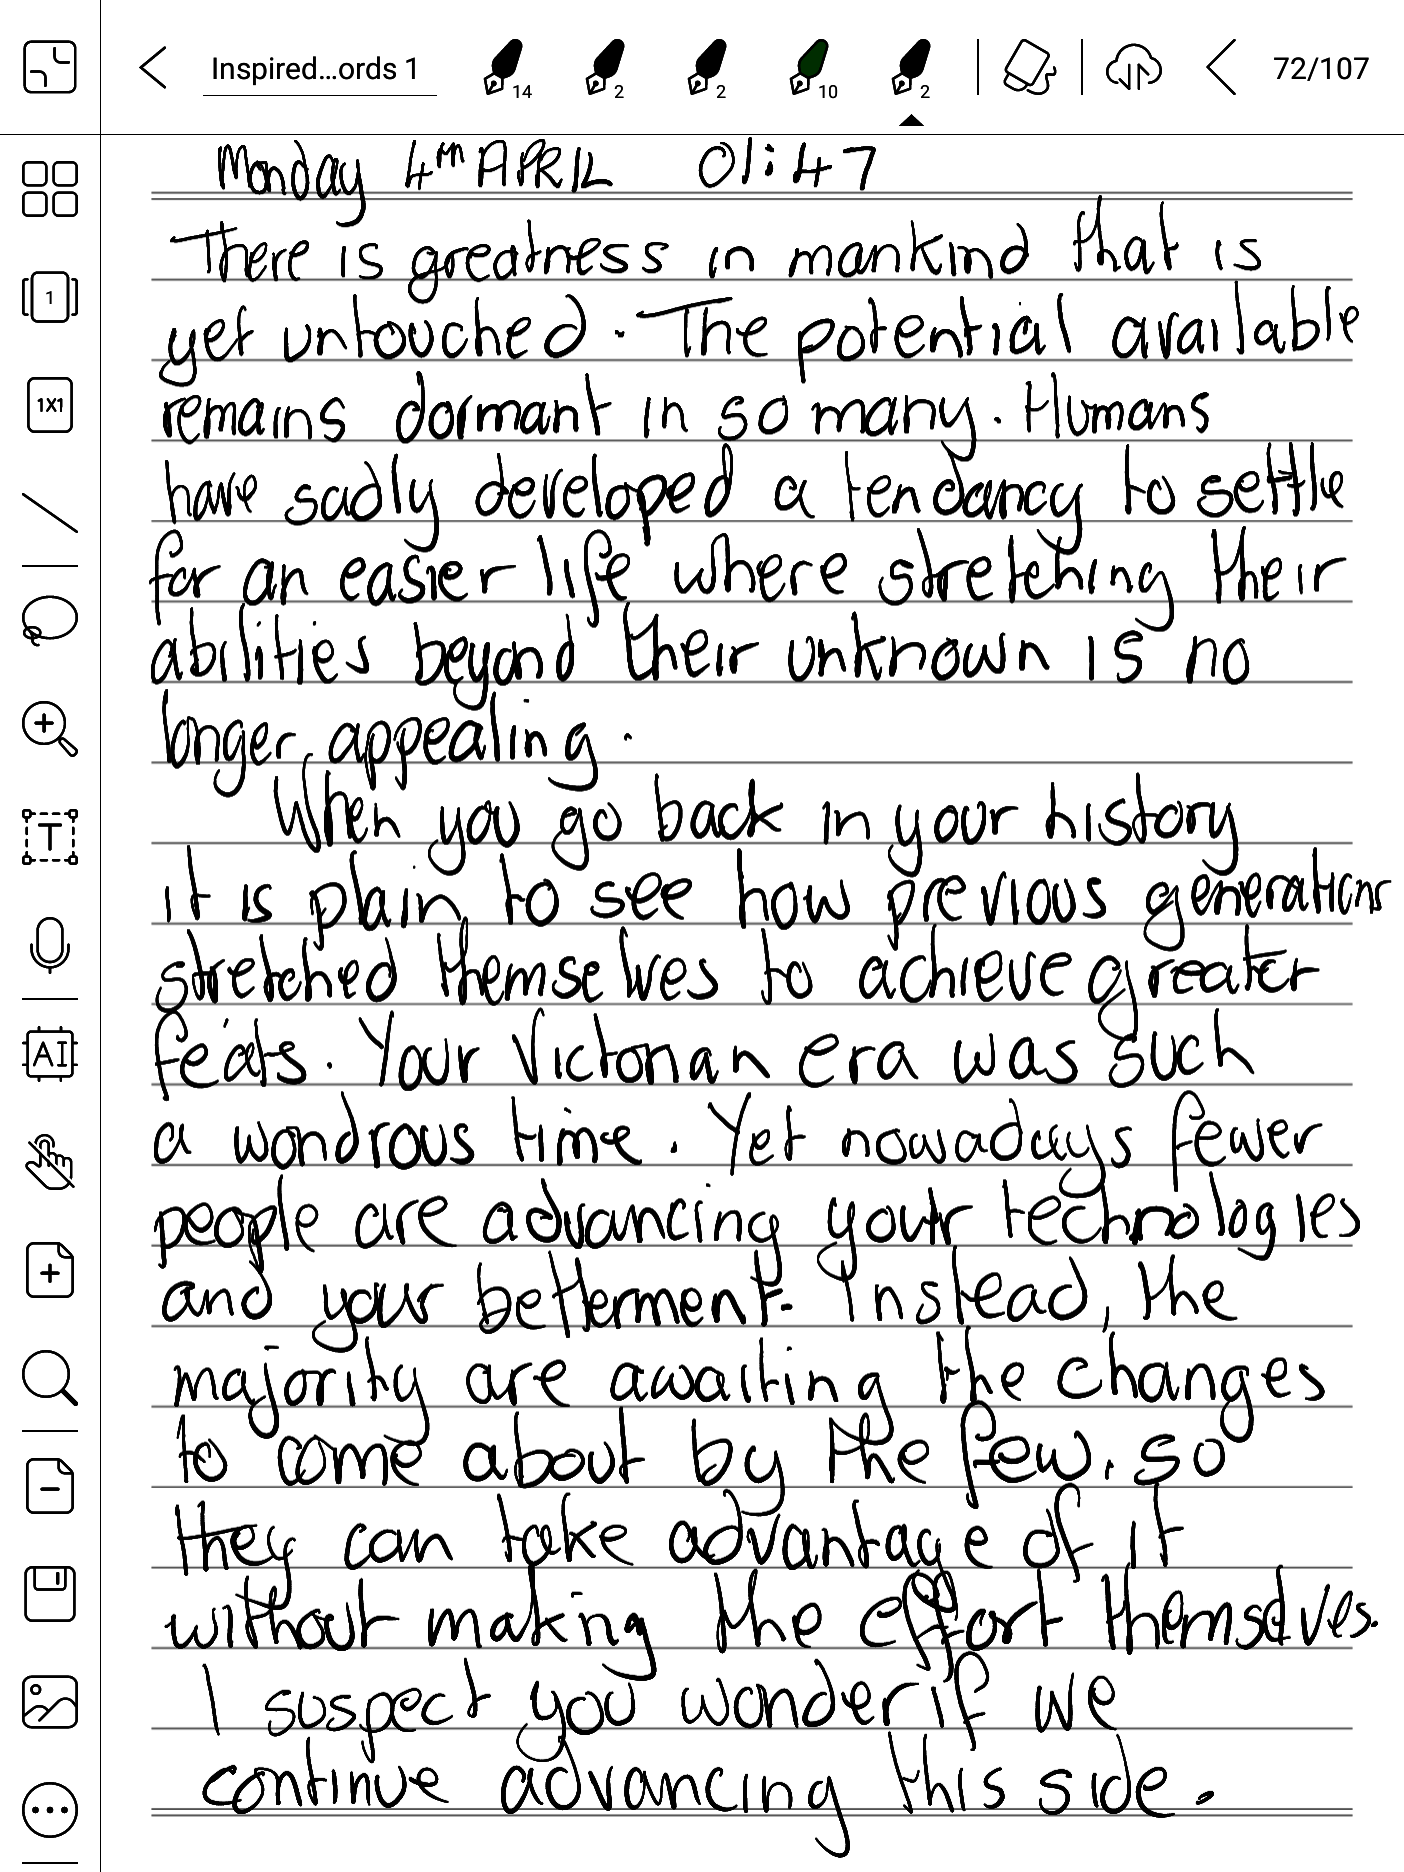 Inspired...ords 1
14
2
2
10
2
72/107
Monday 4th APRIL 01:47
There is greatness in mankind that is
yet untouched. The potential available
remains dormant in so many. Humans
have sadly developed a tendancy to settle
for an easier life where stretching their
abilities beyond their unknown is no
longer appealing.
When you go back in your history
it is plain to see how previous generations
stretched themselves to achieve greater
feats. Your Victorian era was such
a wondrous time. Yet nowadays fewer
people are advancing your technologies
and your betterment. Instead, the
majority are awaiting the changes
to come about by the few, so
they can take advantage of it
without making the effort themselves.
I suspect you wonder if we
continue advancing this side.
1
1X1
T
AI